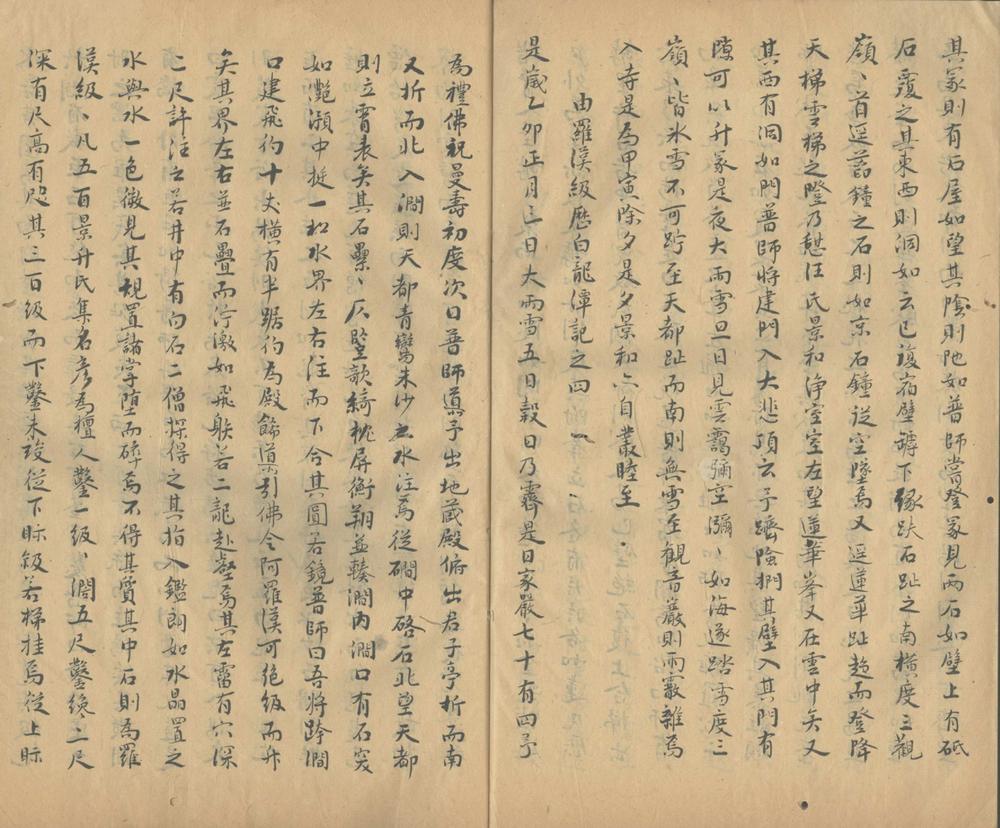 其冡則有石屋如望其陰則阤如普師嘗登冡見两石如壁上有砥
石覆之其東西則洞如云已復宿壁罅下緣趺石趾之南橫度三觀
嶺、首逕蒻鐘之石則如京石鐘從空墜焉又逕蓮華趾趋而登降
天梯雲梯之隥乃憇汪氏景和浄室室左望蓮華峯又在雲中矣又
其西有洞如門普師将建門入大悲頂云予躋險捫其壁入其門有
隙可以升冡是夜大雨雪旦日見雲靄彌空瀰、如海遂踏雪度三
嶺、皆氷雪不可跨至天都趾而南則無雪至觀音巖則雨霰雜焉
入寺是為甲寅除夕是夕景和亦自叢睦至
由羅漢級歷白龍潭記之四
是嵗乙卯正月三日大雨雪五日穀日乃霽是日家嚴七十有四予
為禮佛祝曼壽初度次日普師導予出地藏殿俯出君子亭折而南
又折而北入澗則天都青鸞朱沙之水注焉從磵中啓石北望天都
則立霄表矣其石纍、仄竪欹綺枕屏衡翔並輳澗内澗口有石突
如灔澦中挺一松水界左右注而下合其圓若鏡普師曰吾将跨澗
口建飛彴十丈横有半踞彴為殿飾導引佛令阿羅漢可绝級而升
矣其界左右並石疊而泞激如飛躲若二龍赴壑焉其左雷有穴深
二尺許注之若井中有白石二僧探得之其指入鑑朗如水晶置之
水與水一色微見其規置諸掌堕而碎焉不得其質其中石則為羅
漢級、凡五百景升氏集名彥為檀人鑿一級、濶五尺鑿纔二尺
深有尺高有咫其三百級而下鑿未竣從下眎級若梯挂焉從上眎